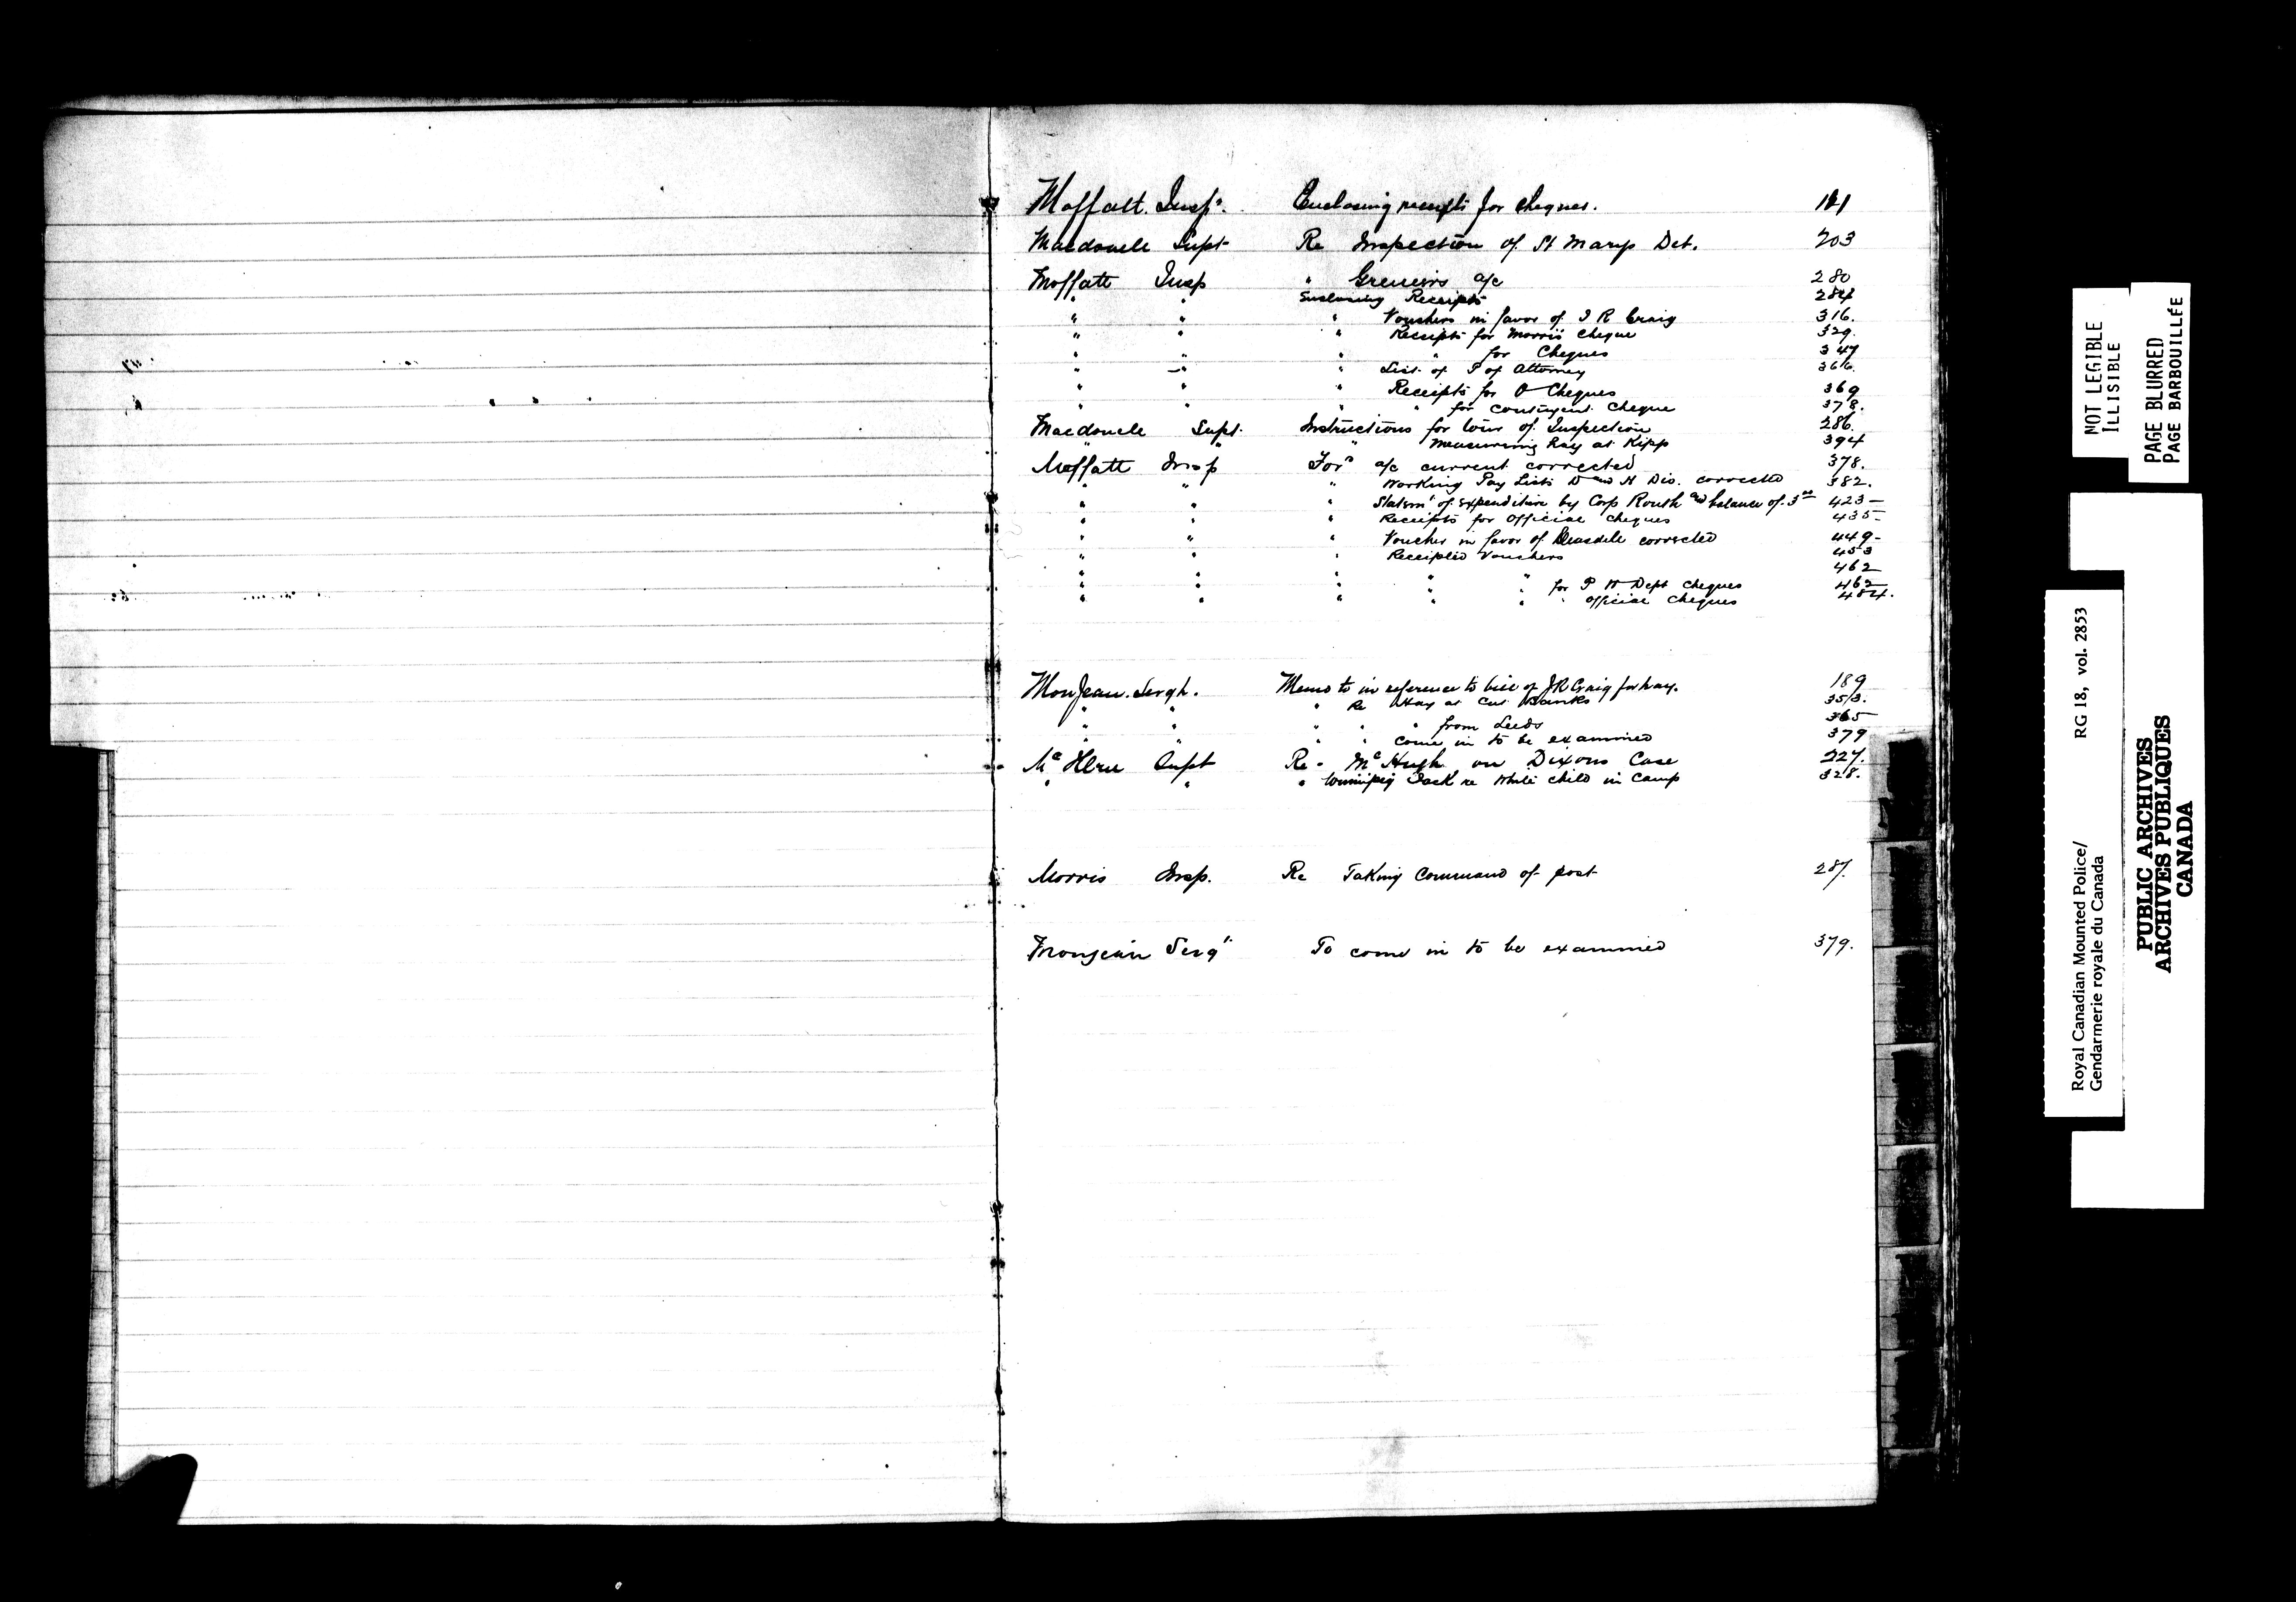 Moffatt. Insp. Enclosing receipts for cheques. 161
Macdonell Supt Re Inspection of St Marys Det. 203
Moffatt Insp " Greniers a/c 280
" " Enclosing Receipts 284
" " " Vouchers in favor of I R Craig 316.
" " " Receipts for Morris' Cheque 329.
" " " " for Cheques 347
" " " List of P of Attorney 366.
" " " Receipts for O Cheques 369
" " " " for contingent Cheque 378.
Macdonell Supt. Instructions for tour of Inspection 286.
" " " Measuring Hay at Kipp 394
Moffatt Insp For a/c current corrected 378.
" " " Working Pay Lists D and H Div. corrected 382.
" " " Statemt of Expenditure by Corp Routh and balance of 3 423-
" " " Receipts for Official Cheques 435-
" " " Voucher in favor of corrected 449-
" " " Receipted Vouchers 453
" " " " " 462
" " " " " for P W Dept Cheques 462
" " " " " " official Cheques 484.
Monjean. Sergt. Memo to in reference to bill of JR Craig for hay. 189
" " " Re Hay at Cut Banks 353.
" " " " " from Leeds 365
" " " " come in to be examined 379
Mc Illree Supt Re - McHugh on Dixons Case 227.
" " " Winnipeg Jack re White child in Camp 328.
Morris Insp. Re Taking Command of post 287.
Monjean Sergt To come in to be examined 379.
NOT LEGIBLE
ILLISIBLE
PAGE BLURRED
PAGE BARBOUILLÉE
RG 18, vol. 2853
Royal Canadian Mounted Police/
Gendarmerie royale du Canada
PUBLIC ARCHIVES
ARCHIVES PUBLIQUES
CANADA